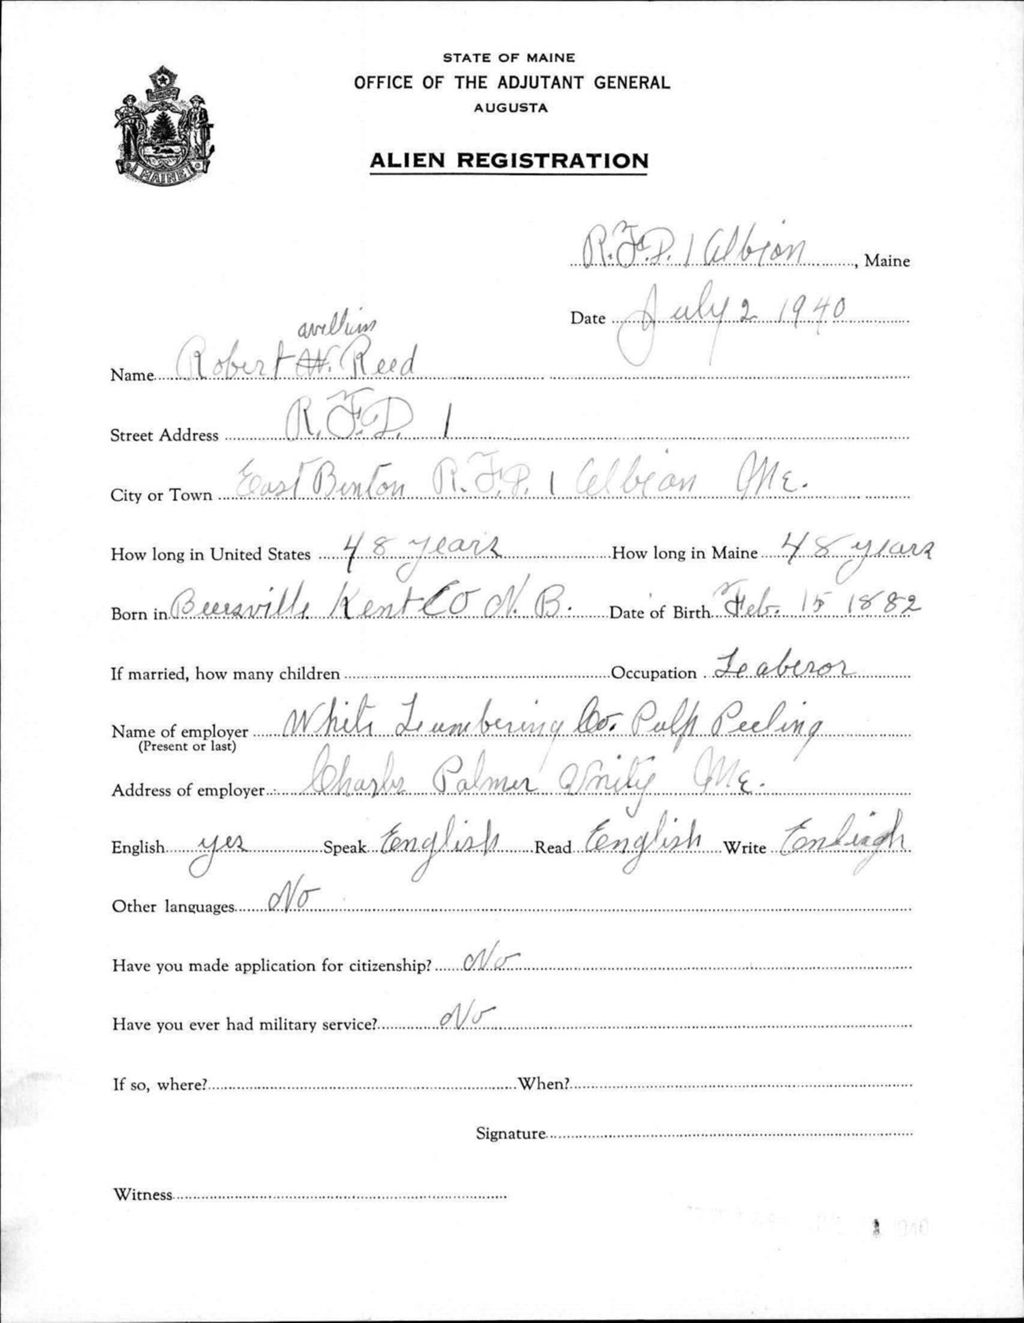 STATE OF MAINE
OFFICE OF THE ADJUTANT GENERAL
AUGUSTA
MAINE
ALIEN REGISTRATION
R.F.D. 1 Albion, Maine
Date July 2 1940
Name Robert W. Reed
Street Address R.F.D. 1
City or Town East Benton R.F.D. 1 Albion Me.
How long in United States 48 years How long in Maine 48 years
Born in Beersville Kent Co N.B. Date of Birth Feb. 15 1882
If married, how many children Occupation Leaberor
Name of employer White Leumbering Co. Pulp Peeling
(Present or last)
Address of employer Charles Palmer Unity Me.
English yes Speak English Read English Write Enligh
Other languages No
Have you made application for citizenship? No
Have you ever had military service? No
If so, where? When?
Signature
Witness